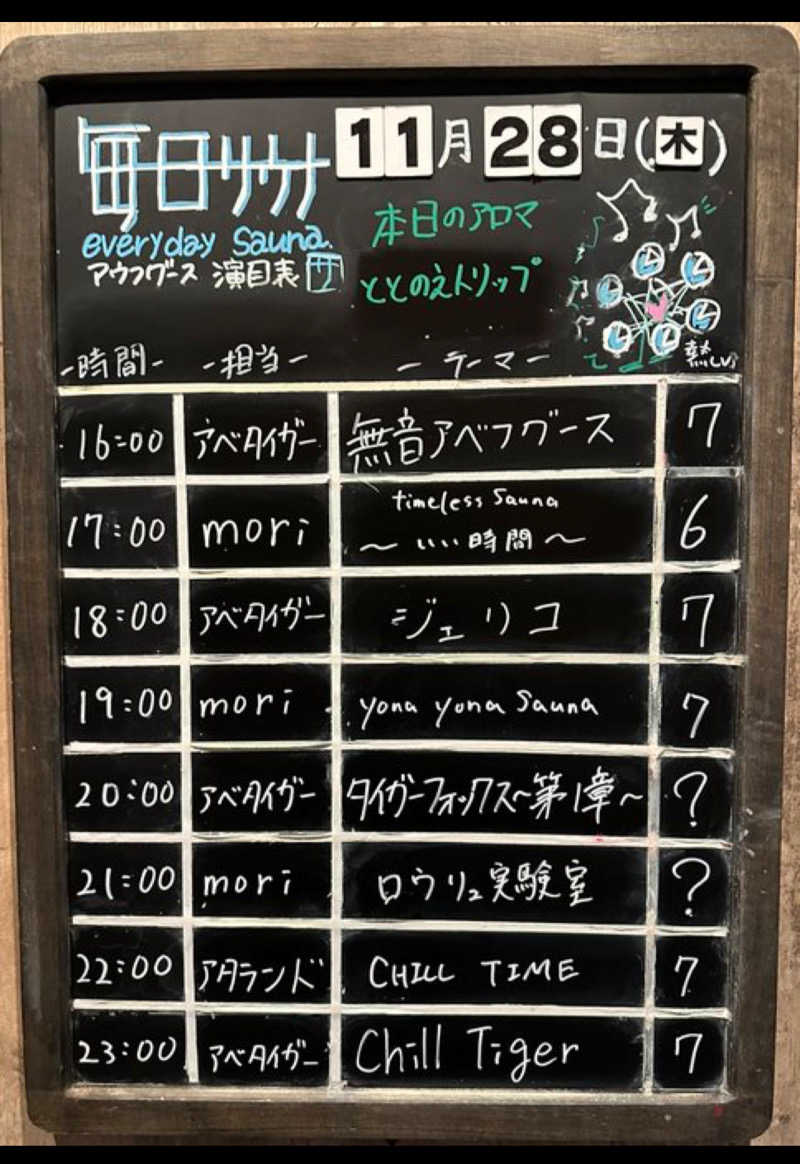 毎日サウナ
11月28日(木)
everyday Sauna.
アウフグース 演目表 サ
本日のアロマ
ととのえトリップ
-時間- -担当- -テーマ- 熱レベ
16:00 アベタイガー 無音アベフグース 7
17:00 mori timeless Sauna
～いい時間～ 6
18:00 アベタイガー ジェリコ 7
19:00 mori yona yona Sauna 7
20:00 アベタイガー タイガーフォックス～第1章～ ?
21:00 mori ロウリュ実験室 ?
22:00 アタランド CHILL TIME 7
23:00 アベタイガー Chill Tiger 7